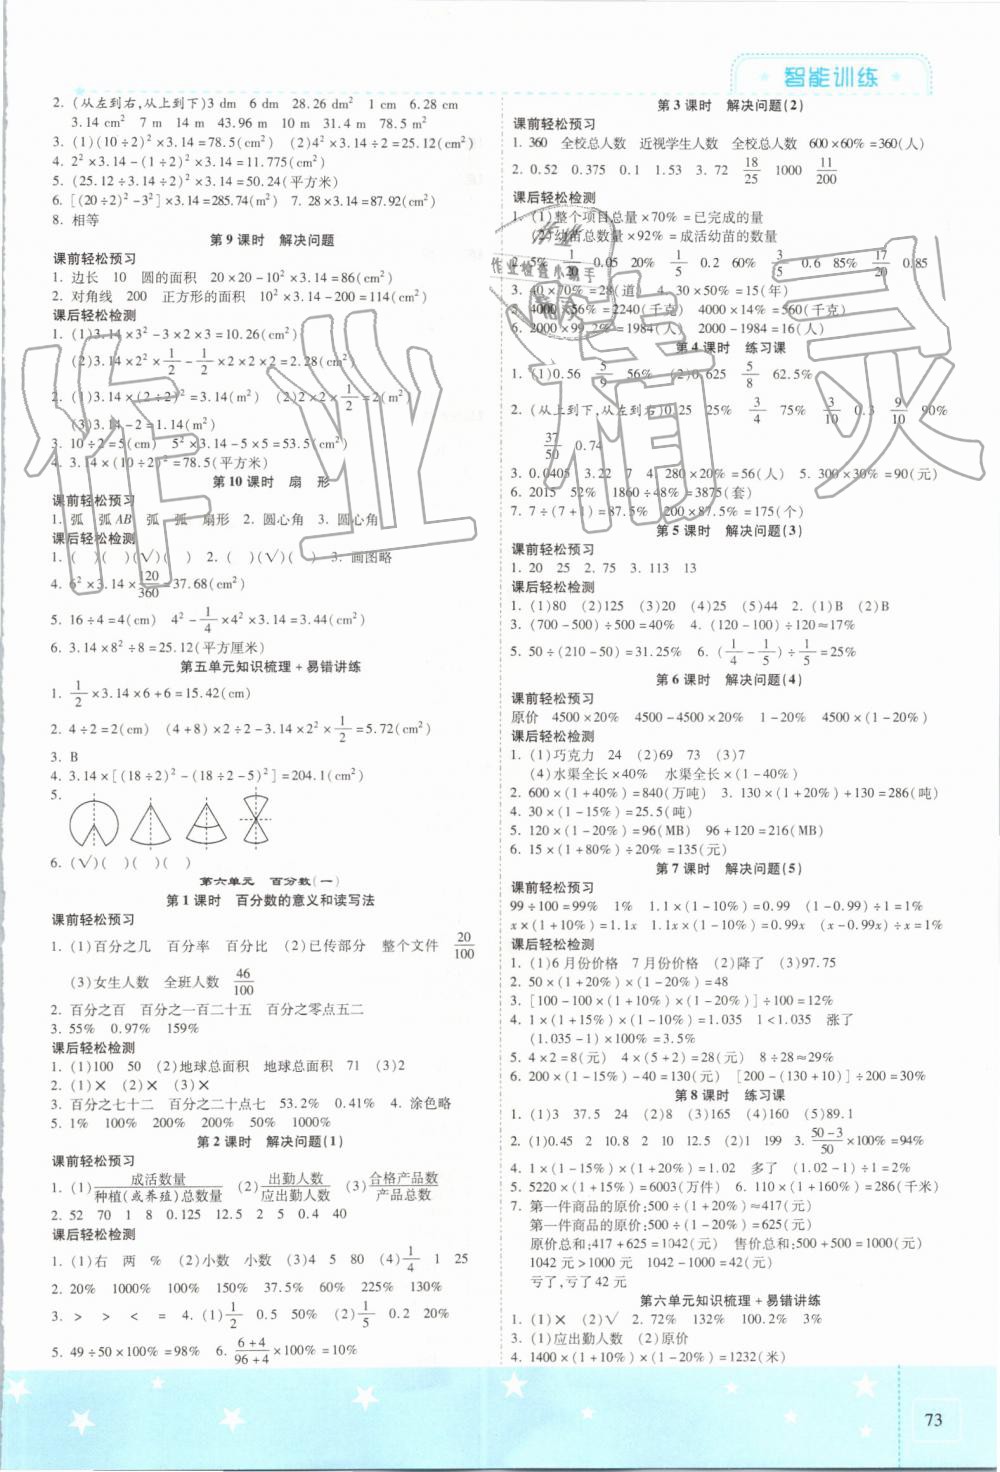 智能训练
2. (从左到右,从上到下)3 dm 6 dm 28.26 dm² 1 cm 6.28 cm
3.14 cm² 7 m 14 m 43.96 m 10 m 31.4 m 78.5 m²
3. (1)(10÷2)²×3.14=78.5(cm²) (2)4²×3.14÷2=25.12(cm²)
4. 2²×3.14-(1÷2)²×3.14=11.775(cm²)
5. (25.12÷3.14÷2)²×3.14=50.24(平方米)
6. [(20÷2)²-3²]×3.14=285.74(m²) 7. 28×3.14=87.92(m)
8. 相等
第9课时 解决问题
课前轻松预习
1. 边长 10 圆的面积 20×20-10²×3.14=86(cm²)
2. 对角线 200 正方形的面积 10²×3.14-200=114(cm²)
课后轻松检测
1. (1)3.14×3²-3×2×3=10.26(cm²)
(2)3.14×2²×1/2-1/2×2×2×2=2.28(cm²)
2. (1)3.14×(2÷2)²=3.14(m²) (2)2×2×1/2=2(m²)
(3)3.14-2=1.14(m²)
3. 10÷2=5(cm) 5²×3.14-5×5=53.5(cm²)
4. 3.14×(10÷2)²=78.5(平方米)
第10课时 扇 形
课前轻松预习
1. 弧 弧AB 弧 弧 扇形 2. 圆心角 3. 圆心角
课后轻松检测
1. ( )( )(√)( ) 2. ( )(√)( ) 3. 画图略
4. 6²×3.14×120/360=37.68(cm²)
5. 16÷4=4(cm) 4²-1/4×4²×3.14=3.44(cm²)
6. 3.14×8²÷8=25.12(平方厘米)
第五单元知识梳理+易错讲练
1. 1/2×3.14×6+6=15.42(cm)
2. 4÷2=2(cm) (4+8)×2÷2-3.14×2²×1/2=5.72(cm²)
3. B
4. 3.14×[(18÷2)²-(18÷2-5)²]=204.1(cm²)
5.
6. (√)( )( )( )
第六单元 百分数(一)
第1课时 百分数的意义和读写法
课前轻松预习
1. (1)百分之几 百分率 百分比 (2)已传部分 整个文件 20/100
(3)女生人数 全班人数 46/100
2. 百分之百 百分之一百二十五 百分之零点五二
3. 55% 0.97% 159%
课后轻松检测
1. (1)100 50 (2)地球总面积 地球总面积 71 (3)2
2. (1)× (2)× (3)×
3. 百分之七十二 百分之二十点七 53.2% 0.41% 4. 涂色略
5. 1% 100% 200% 200% 50% 1000%
第2课时 解决问题(1)
课前轻松预习
1. (1)成活数量/种植(或养殖)总数量 (2)出勤人数/应出勤人数 (3)合格产品数/产品总数
2. 52 70 1 8 0.125 12.5 2 5 0.4 40
课后轻松检测
1. (1)右 两 % (2)小数 小数 (3)4 5 80 (4)1/4 1 25
2. 20% 1000% 100% 150% 37.5% 60% 225% 130%
3. > > < = 4. (1)1/2 0.5 50% (2)1/5 0.2 20%
5. 49÷50×100%=98% 6. 6+4/96+4×100%=10%
第3课时 解决问题(2)
课前轻松预习
1. 360 全校总人数 近视学生人数 全校总人数 600×60%=360(人)
2. 0.52 0.375 0.1 1.53 3.72 18/25 1000 11/200
课后轻松检测
1. (1)整个项目总量×70%=已完成的量
(2)幼苗总数量×92%=成活幼苗的数量
2. 5% 1/20 0.05 20% 1/5 0.2 60% 3/5 0.6 85% 17/20 0.85
3. 40×70%=28(道) 4. 30×50%=15(年)
5. 4000×56%=2240(千克) 4000×14%=560(千克)
6. 2000×99.2%=1984(人) 2000-1984=16(人)
第4课时 练习课
1. (1)0.56 5/9 56% (2)0.625 5/8 62.5%
2. (从上到下,从左到右)0.25 25% 3/4 75% 3/10 0.3 9/10 90%
37/50 0.74
3. 0.0405 3.22 7 4. 280×20%=56(人) 5. 300×30%=90(元)
6. 2015 52% 1860÷48%=3875(套)
7. 7÷(7+1)=87.5% 200×87.5%=175(个)
第5课时 解决问题(3)
课前轻松预习
1. 20 25 2. 75 3. 113 13
课后轻松检测
1. (1)80 (2)125 (3)20 (4)25 (5)44 2. (1)B (2)B
3. (700-500)÷500=40% 4. (120-100)÷120≈17%
5. 50÷(210-50)=31.25% 6. (1/4-1/5)÷1/5=25%
第6课时 解决问题(4)
课前轻松预习
原价 4500×20% 4500-4500×20% 1-20% 4500×(1-20%)
课后轻松检测
1. (1)巧克力 24 (2)69 73 (3)7
(4)水渠全长×40% 水渠全长×(1-40%)
2. 600×(1+40%)=840(万吨) 3. 130×(1+20%)+130=286(吨)
4. 30×(1-15%)=25.5(吨)
5. 120×(1-20%)=96(MB) 96+120=216(MB)
6. 15×(1+80%)÷20%=135(元)
第7课时 解决问题(5)
课前轻松预习
99÷100=99% 1% 1.1×(1-10%)=0.99 (1-0.99)÷1=1%
x×(1+10%)=1.1x 1.1x×(1-10%)=0.99x (x-0.99x)÷x=1%
课后轻松检测
1. (1)6月份价格 7月份价格 (2)降了 (3)97.75
2. 50×(1+20%)×(1-20%)=48
3. [100-100×(1+10%)×(1-20%)]÷100=12%
4. 1×(1+15%)×(1-10%)=1.035 1<1.035 涨了
(1.035-1)×100%=3.5%
5. 4×2=8(元) 4×(5+2)=28(元) 8÷28≈29%
6. 200×(1-35%)=130(元) [200-(130+10)]÷200=30%
第8课时 练习课
1. (1)3 37.5 24 (2)8 (3)165 (4)160 (5)89.1
2. (1)0.45 2 10.8 2 10 12.5 (2)1 199 3. 50-3/50×100%=94%
4. 1×(1-15%)×(1+20%)=1.02 多了 (1.02-1)÷1=2%
5. 5220×(1+15%)=6003(万件) 6. 110×(1+160%)=286(千米)
7. 第一件商品的原价:500÷(1+20%)≈417(元)
第一件商品的原价:500÷(1-20%)=625(元)
原价总和:417+625=1042(元) 售价总和:500+500=1000(元)
1042元>1000元 1042-1000=42(元)
亏了,亏了42元
第六单元知识梳理+易错讲练
1. (1)× (2)√ 2. 72% 132% 100.2% 3%
3. (1)应出勤人数 (2)原价
4. 1400×(1+10%)×(1-20%)=1232(米)
73
作业精灵
作业
作业检查小帮手
精灵